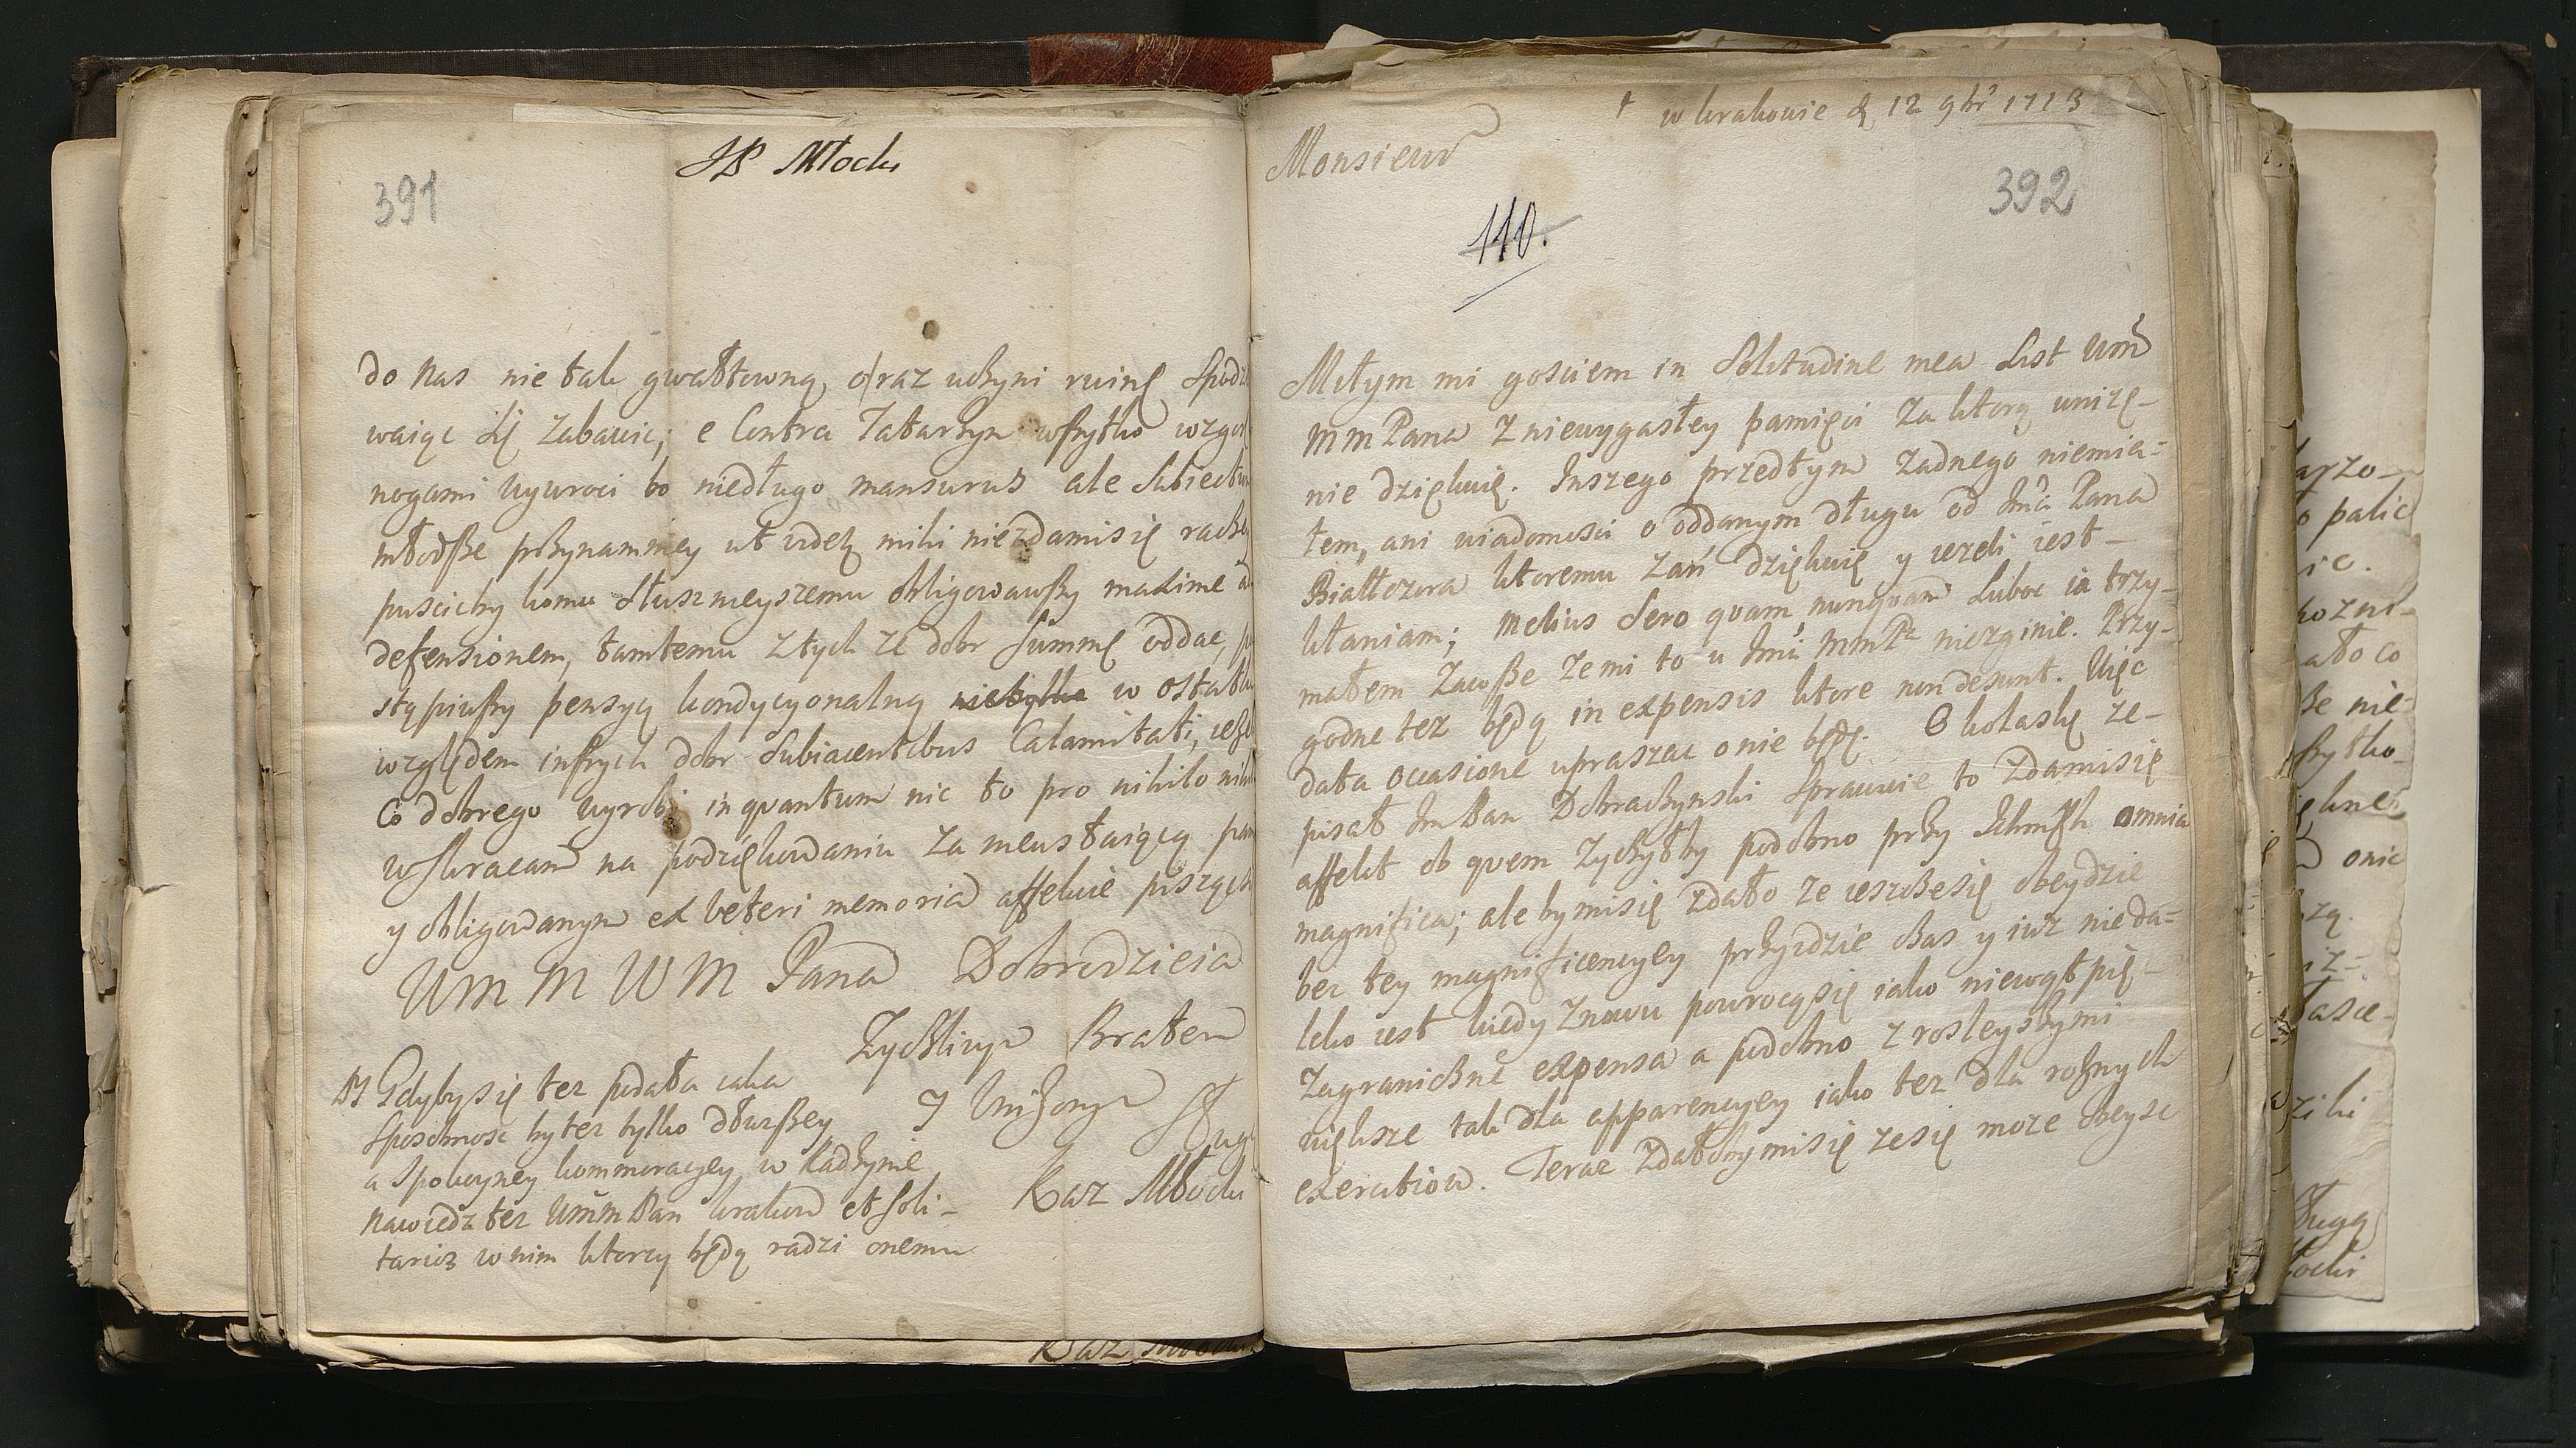 JP Młocki
391
do nas nie tak gwałtowną, oraz uczyni ruinę spodzie
waiąc się zabawic; e contra Tatarzyn wszytko wzgor
nogami wywroci bo niedługo mansurus ale subiectum
młodsze przynamniey ut videtz mihi niezdamisię raczey
puscicby komu słuszneyszemu obligowawszy maxime ad
defensionem, tamtemu z tych ze dobr summę oddac,
stąpiwszy pensyą kondycyonalną w ostatku
względem inszych dobr subiacentibus Calamitati, iesli
Co dobrego wyrobi inquantum nic to pro nihilo nihil
wskracam na podziękowaniu za nieustaiącą pam
y obligowanym ex veteri memoria affekcie pisząc
Wm M W M Pana Dobrodzieia
Zyczliwym Bratem
y Unizonym Sług
Kaz Młocki
PS Gdyby się tez podała iaka
sposobnosc by tez tylko dłuzszey
a spokoyney kommoracyey w Radzynie
nawiedz tez WmmPan krakow et soli-
tarios w nim ktorzy będą radzi onemu
Kaz
† w krakowie d 12 9bris 1713
Monsieur
392
110.
Miłym mi gosciem in solitudine mea List Wm
MM Pana z niewygasłey pamięci za ktorą unizę-
nie dziękuię. Inszego przedtym zadnego niemia-
tem, ani wiadomosci o oddanym długu od Jmci Pana
Białłozora ktoremu zań dziękuię y iezeli iest-
kłaniam; melius sero quam nunquam Luboc ia trzy-
małem zawsze ze mi to u Jmci MmPa niezginie. Przy-
godne tez będą in expensis ktore non desunt. Więc
data occasione upraszac o nie będę. O kolaskę ze-
pisał Jm Pan Dobraczynski sprawuie to zdamisię
affekt ob quem zyczyłby podobno przy Ichmsch omnia
magnifica; ale by misię zdało ze ieszczesię obeydzie
bez tey magnificencyey przyidzie czas y iuz nieda-
leko iest kiedy znowu powrocąsię iako niewątpię-
zagraniczne expensa a podobno z rosleyszymi
większe tak dla apparencyey iako tez dla roznych
exercitiow. Teraz zdałobymisię zesię moze obeysc
arzo-
o palic
ic.
ato co
ze nie-
szytko
onic
zą.
iz-
tasce-
ziki
sługą
łocki